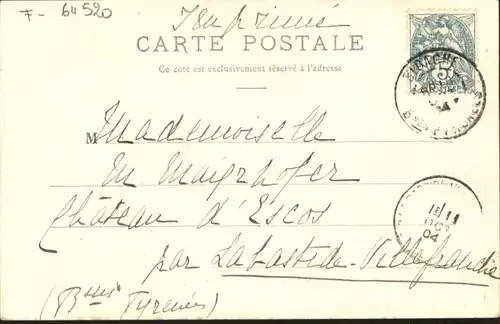 F- 64520
Imprimé
CARTE POSTALE
Ce côté est exclusivement réservé à l'adresse
5
Mademoiselle
M. Mayrhofer
Château d'Escos
par Labastide-Villefranche
(Bses Pyrénées)
11
OCT
04